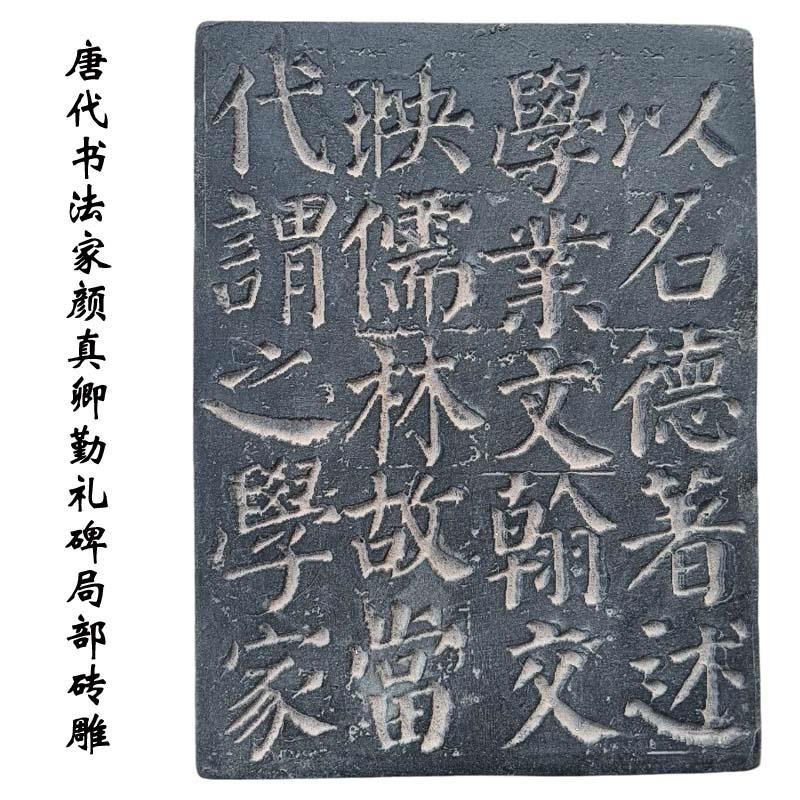 唐代书法家颜真卿勤礼碑局部砖雕
以名德著述
學業文翰交
映儒林故當
代謂之學家